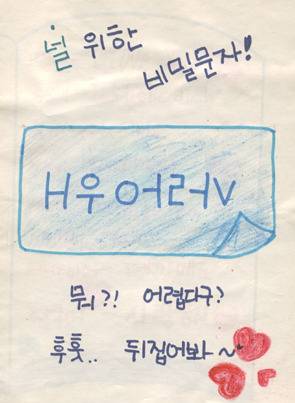 널 위한
비밀문자!
H우어러v
뭐?! 어렵다구?
후훗.. 뒤집어봐~